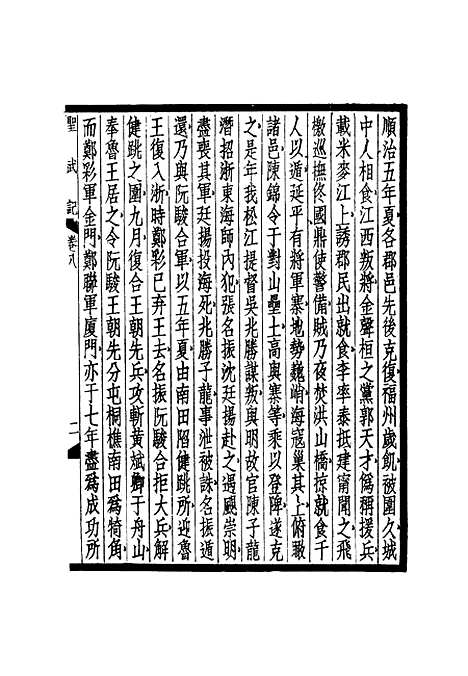 順治五年夏各郡邑先後克復福州歲飢被圍久城
中人相食江西叛將金聲桓之黨郭天才爲稱援兵
載米麥江上誘郡民出就食李率泰抵建甯聞之飛
檄巡撫佟國鼎使警備賊乃夜焚洪山橋掠就食千
人以遁延平有將軍寨地勢巍峭海寇巢其上俯瞰
諸邑陳錦令于對山壘土高與寨等乘以登陴遂克
之是年我松江提督吳兆勝謀叛與明故官陳子龍
潛招浙東海師內犯張名振沈廷揚赴之遇颶崇明
盡喪其軍廷揚投海死兆勝子龍事泄被誅名振遁
還乃與阮駿合軍以五年夏由南田陷健跳所迎魯
王復入浙時鄭彩已弃王去名振阮駿合拒大兵解
健跳之圍九月復合王朝先兵攻斬黃斌卿于舟山
奉魯王居之令阮駿王朝先分屯桐樵南田爲犄角
而鄭彩軍金門鄭聯軍廈門亦于七年盡爲成功所
聖武記
卷八
二